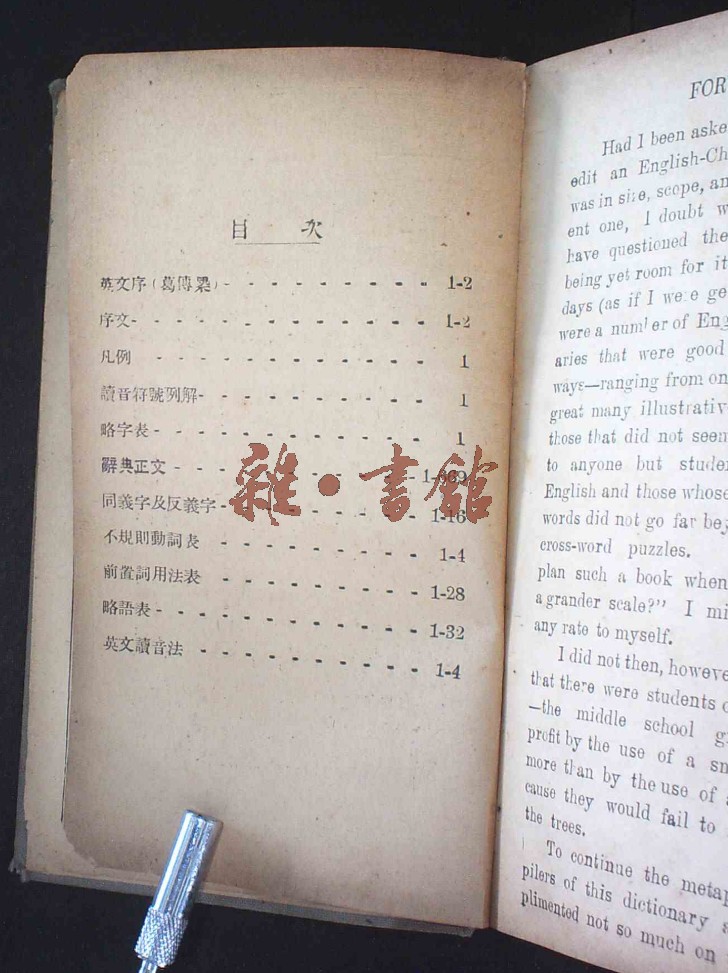 目 次
英文序(葛傳槼) - - - - - - - - 1-2
序文 - - - - - - - - 1-2
凡例 - - - - - - - - 1
讀音符號例解 - - - - - - - - 1
略字表 - - - - - - - - 1
辭典正文 - - - - - - - -
同義字及反義字 - - - - - - - - 1-16
不規則動詞表 - - - - - - - - 1-4
前置詞用法表 - - - - - - - - 1-28
略語表 - - - - - - - - 1-32
英文讀音法 - - - - - - - - 1-4
雜·書館
FOR
Had I been aske
edit an English-Ch
was in size, scope, an
ent one, I doubt w
have questioned the
being yet room for it
days (as if I were ge
were a number of Eng
aries that were good
ways—ranging from on
great many illustrativ
those that did not seem
to anyone but stude
English and those whose
words did not go far bey
cross-word puzzles.
plan such a book when
a grander scale?" I mi
any rate to myself.
I did not then, howeve
that there were students o
—the middle school g
profit by the use of a sm
more than by the use of
cause they would fail to
the trees.
To continue the metap
pilers of this dictionary a
plimented not so much on